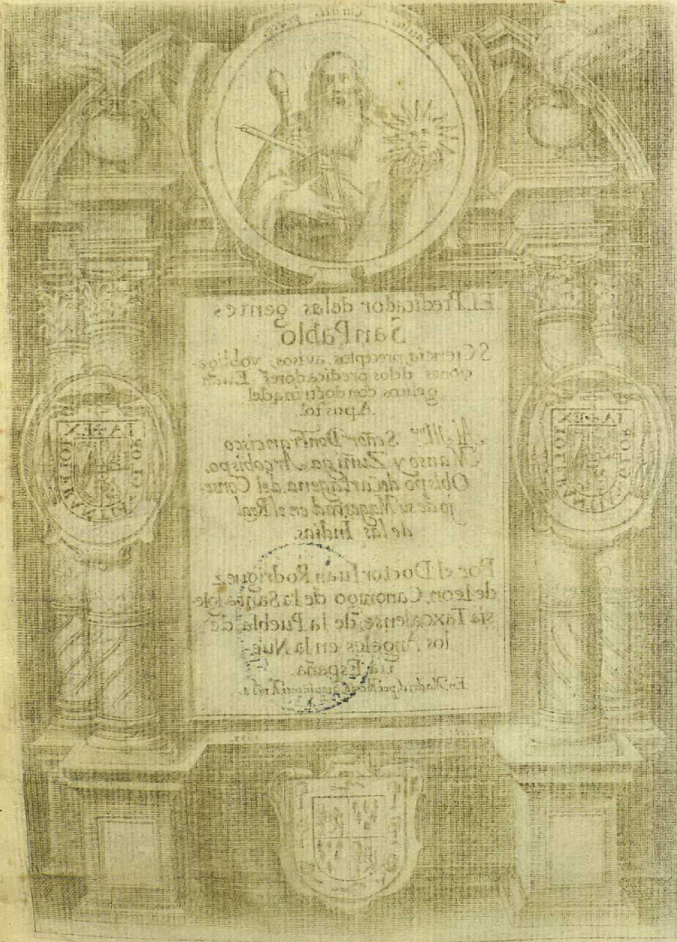 EL Predicador de las gentes
San Pablo
Sciencia, preceptos, avisos, y obliga-
ciones de los predicadores Evan-
gelicos con doctrina del
Apostol
Al Ill.mo Señor Don Francisco
Manso y Zuñiga Arçobispo,
Obispo de Cartagena, del Conse-
jo de su Magestad en el Real
de las Indias.
Por el Doctor Iuan Rodriguez
de Leon, Canonigo de la Santa Igle-
sia Taxcalense, de la Puebla de
los Angeles en la Nue-
va España.
En Madrid por Maria de Quiñones